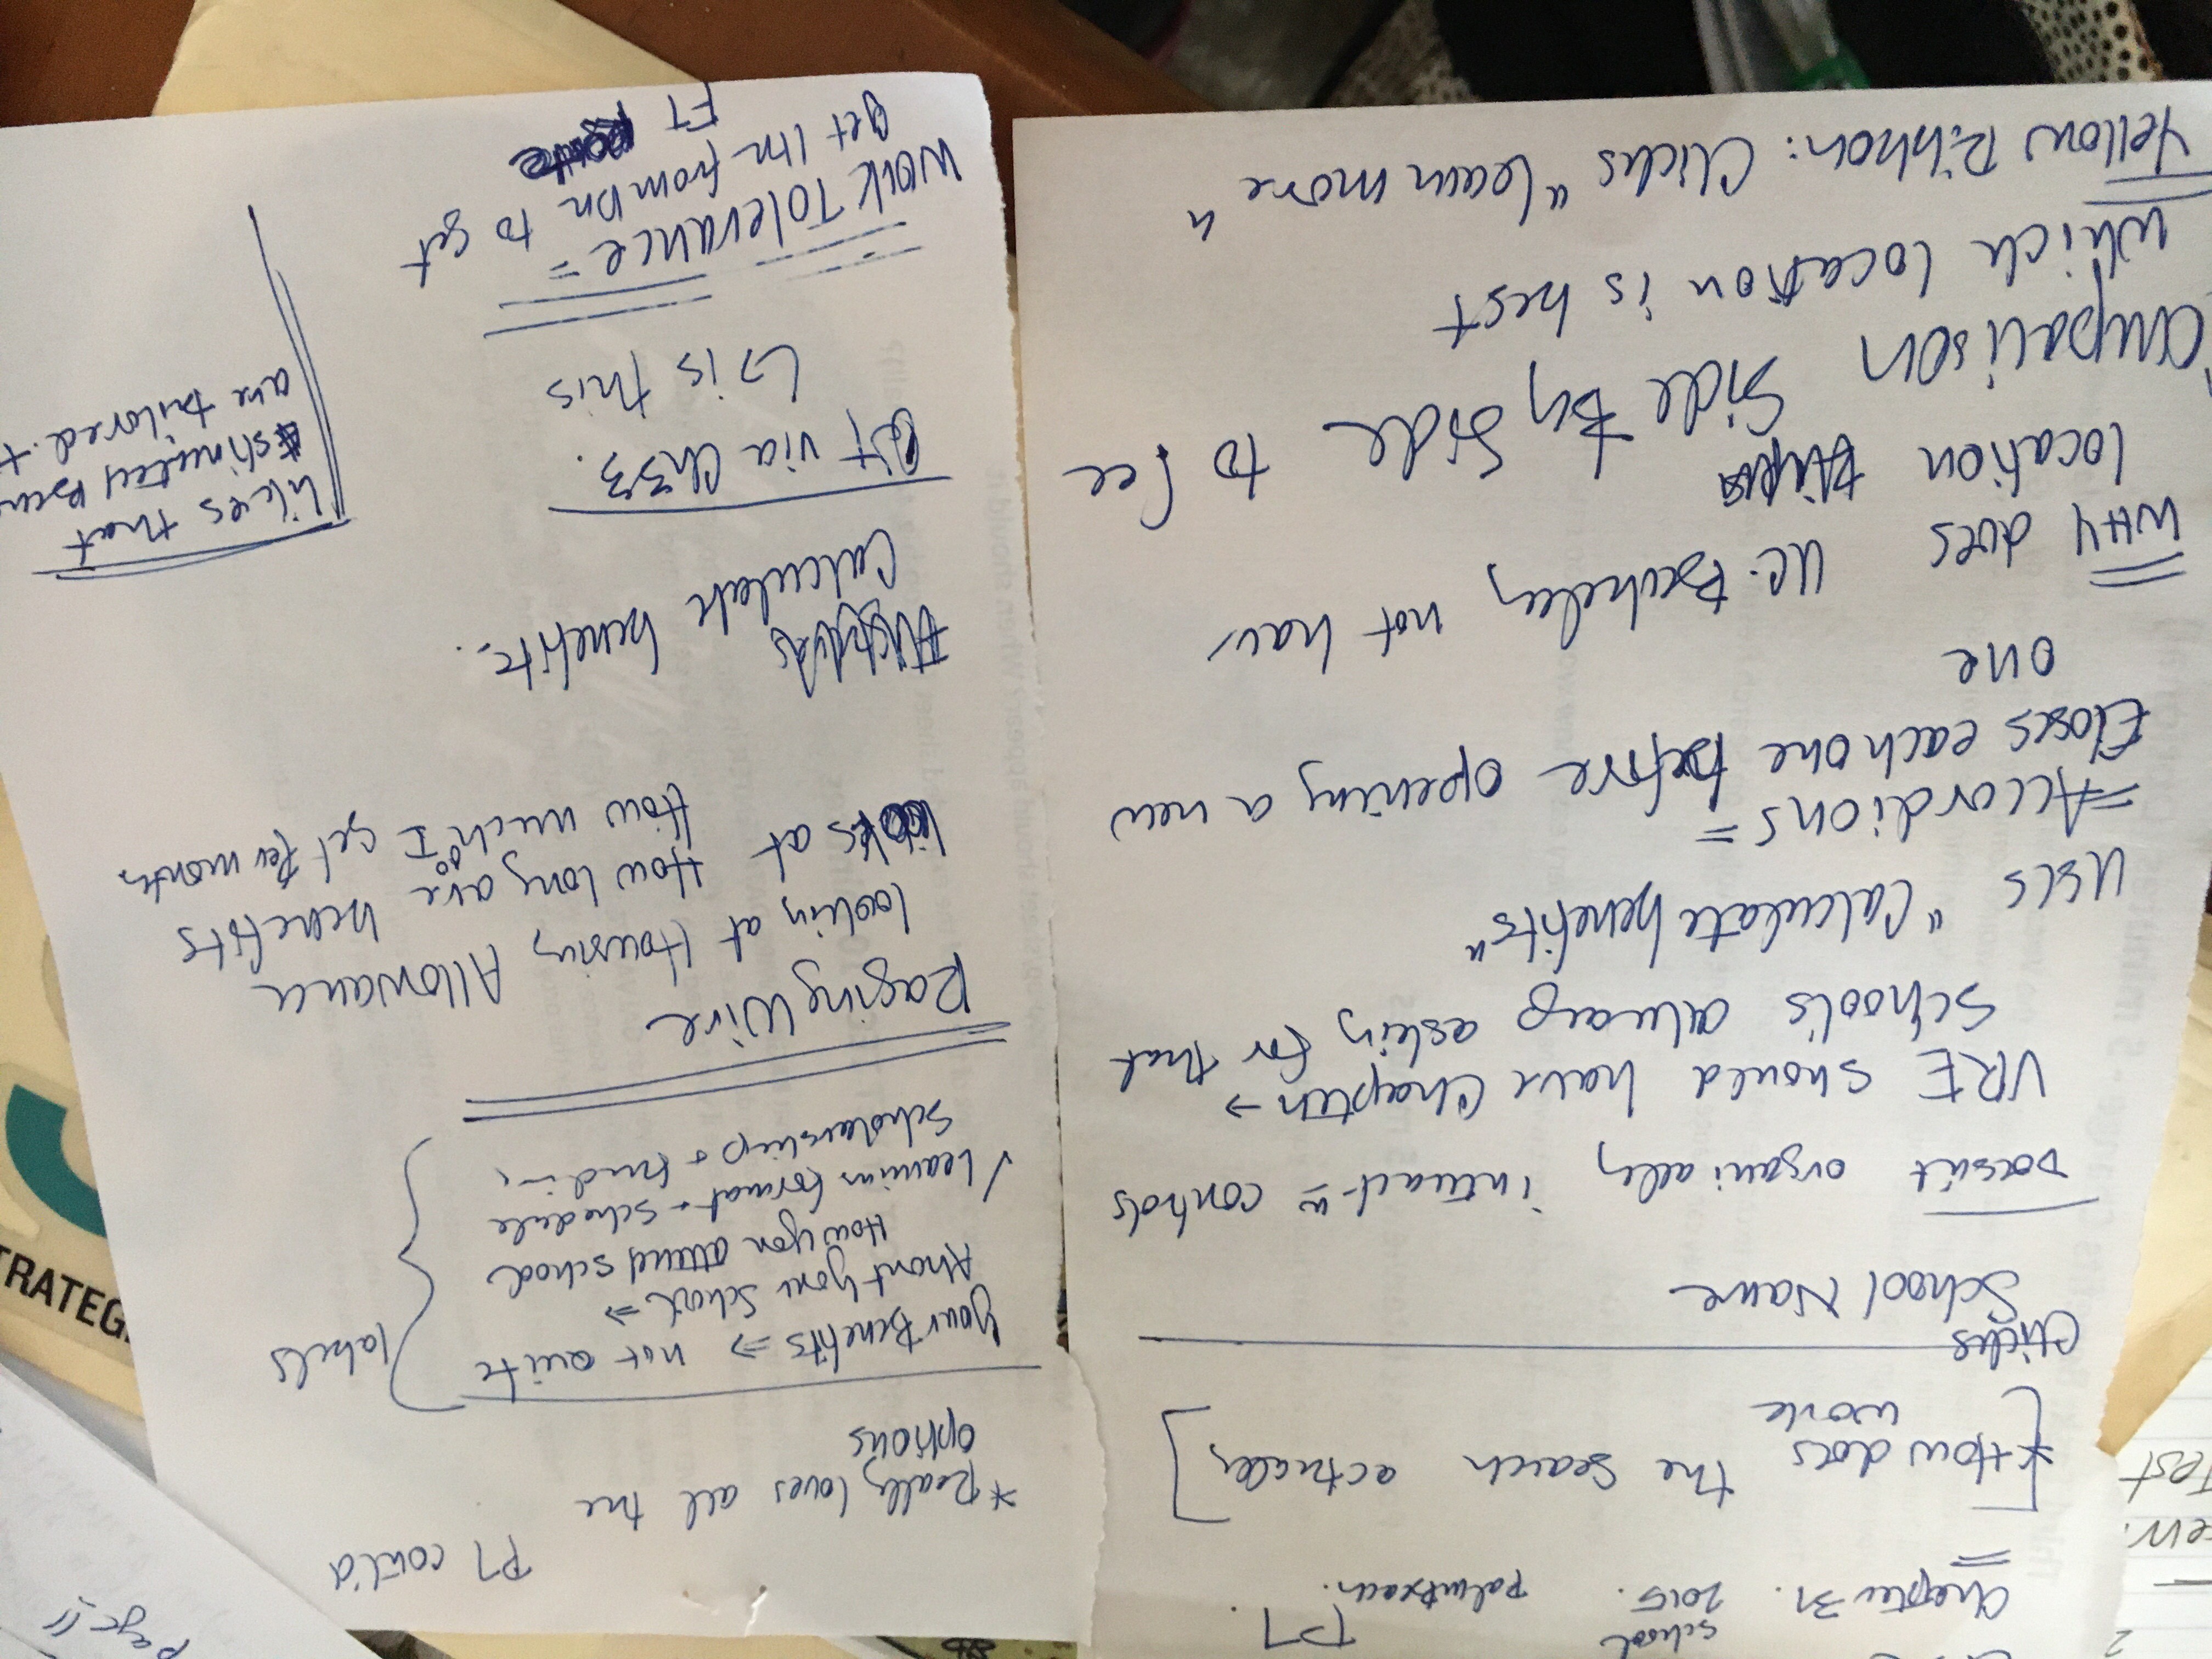 school
P7.
Chapter 31. 2015. Palm Beach.
* How does the search actually
work
Clicks
School Name
Doesn't organically interact w controls
VRE should have Chapter →
School's always asking for that
uses "Calculate benefits"
=Accordions=
Closes each one before opening a new
one
WHY does UC. Berkeley not have
location
Comparison Side by Side to see
which location is best
Yellow Ribbon: Clicks "learn more"
P7 cont'd
* Really loves all the
options
Your Benefits ⇒ not quite
labels
About Your School ⇒
How you attend school
✓ Learning format + schedule
Scholarship + funding
Raging Wire
looking at Housing Allowance
looks at How long are benefits
How much do I get per month
Calculate benefits.
via Ch33.
↳ is this
Likes that
Estimated Ben
are tailored. +
Work Tolerance =
get ltr from Dr to get
FT
page!!
err.
Test
2
RATEG